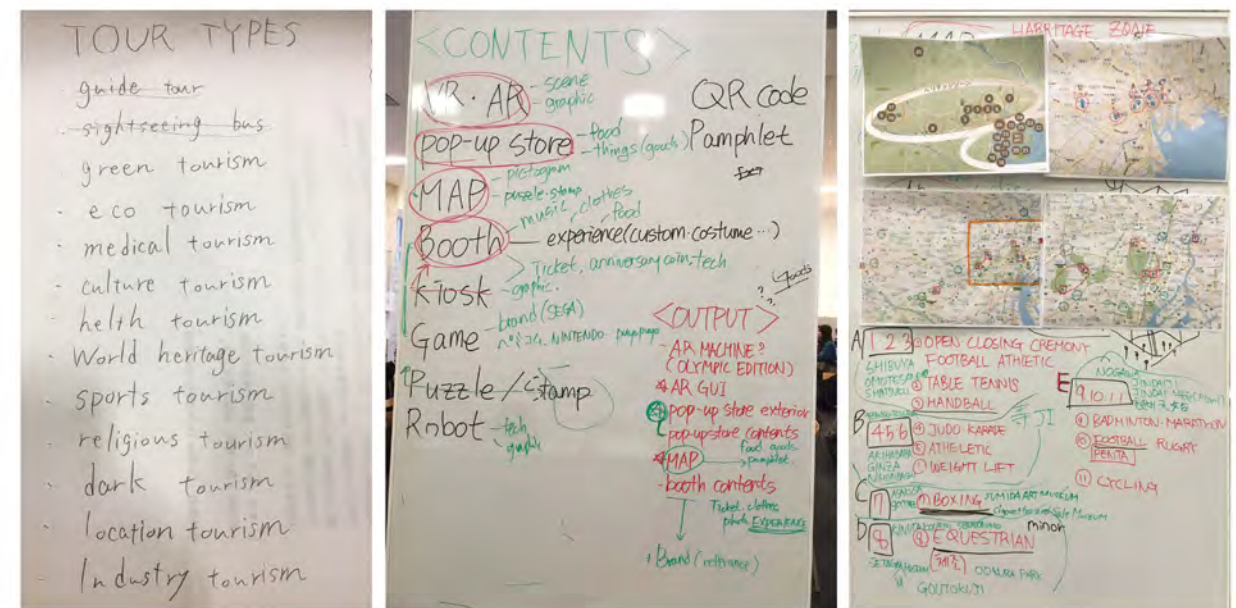 TOUR TYPES
guide tour
sightseeing bus
green tourism
eco tourism
medical tourism
culture tourism
helth tourism
World heritage tourism
sports tourism
religious tourism
dark tourism
location tourism
Industry tourism
<CONTENTS>
VR · AR - scene
- graphic
QR code
pop-up store - food
- things (goods)
Pamphlet
MAP - pictogram
- puzzle·stamp
Booth music, clothes
food
experience (custom·costume ···)
Ticket, anniversary coin, tech
kiosk - graphic.
Game - brand (SEGA)
NINTENDO
Puzzle / stamp
Robot - tech
graphic
? Goods
<OUTPUT>
- AR MACHINE?
(OLYMPIC EDITION)
AR GUI
pop-up store exterior
pop-up store contents
food goods
MAP pamphlet
- booth contents
Ticket·clothes
photo EXPERIENCE
+ Brand (reference)
HABRITAGE ZONE
MAP
A 1 2 3 ① OPEN CLOSING CREMONY
FOOTBALL ATHLETIC
SHIBUYA
② TABLE TENNIS
③ HANDBALL
B 4 5 6 ④ JUDO KARATE
⑤ ATHELETIC
WEIGHT LIFT
AKIHABARA
GINZA
C 7 ⑦ BOXING SUMIDA ART MUSEUM
D 8 ⑧ EQUESTRIAN
minor
GOUTOKUJI
E 9.10.11
NOGAWA
JINDAIJI
⑨ BADMINTON·MARATHON
⑩ FOOTBALL RUGBY
PENTA
⑪ CYCLING